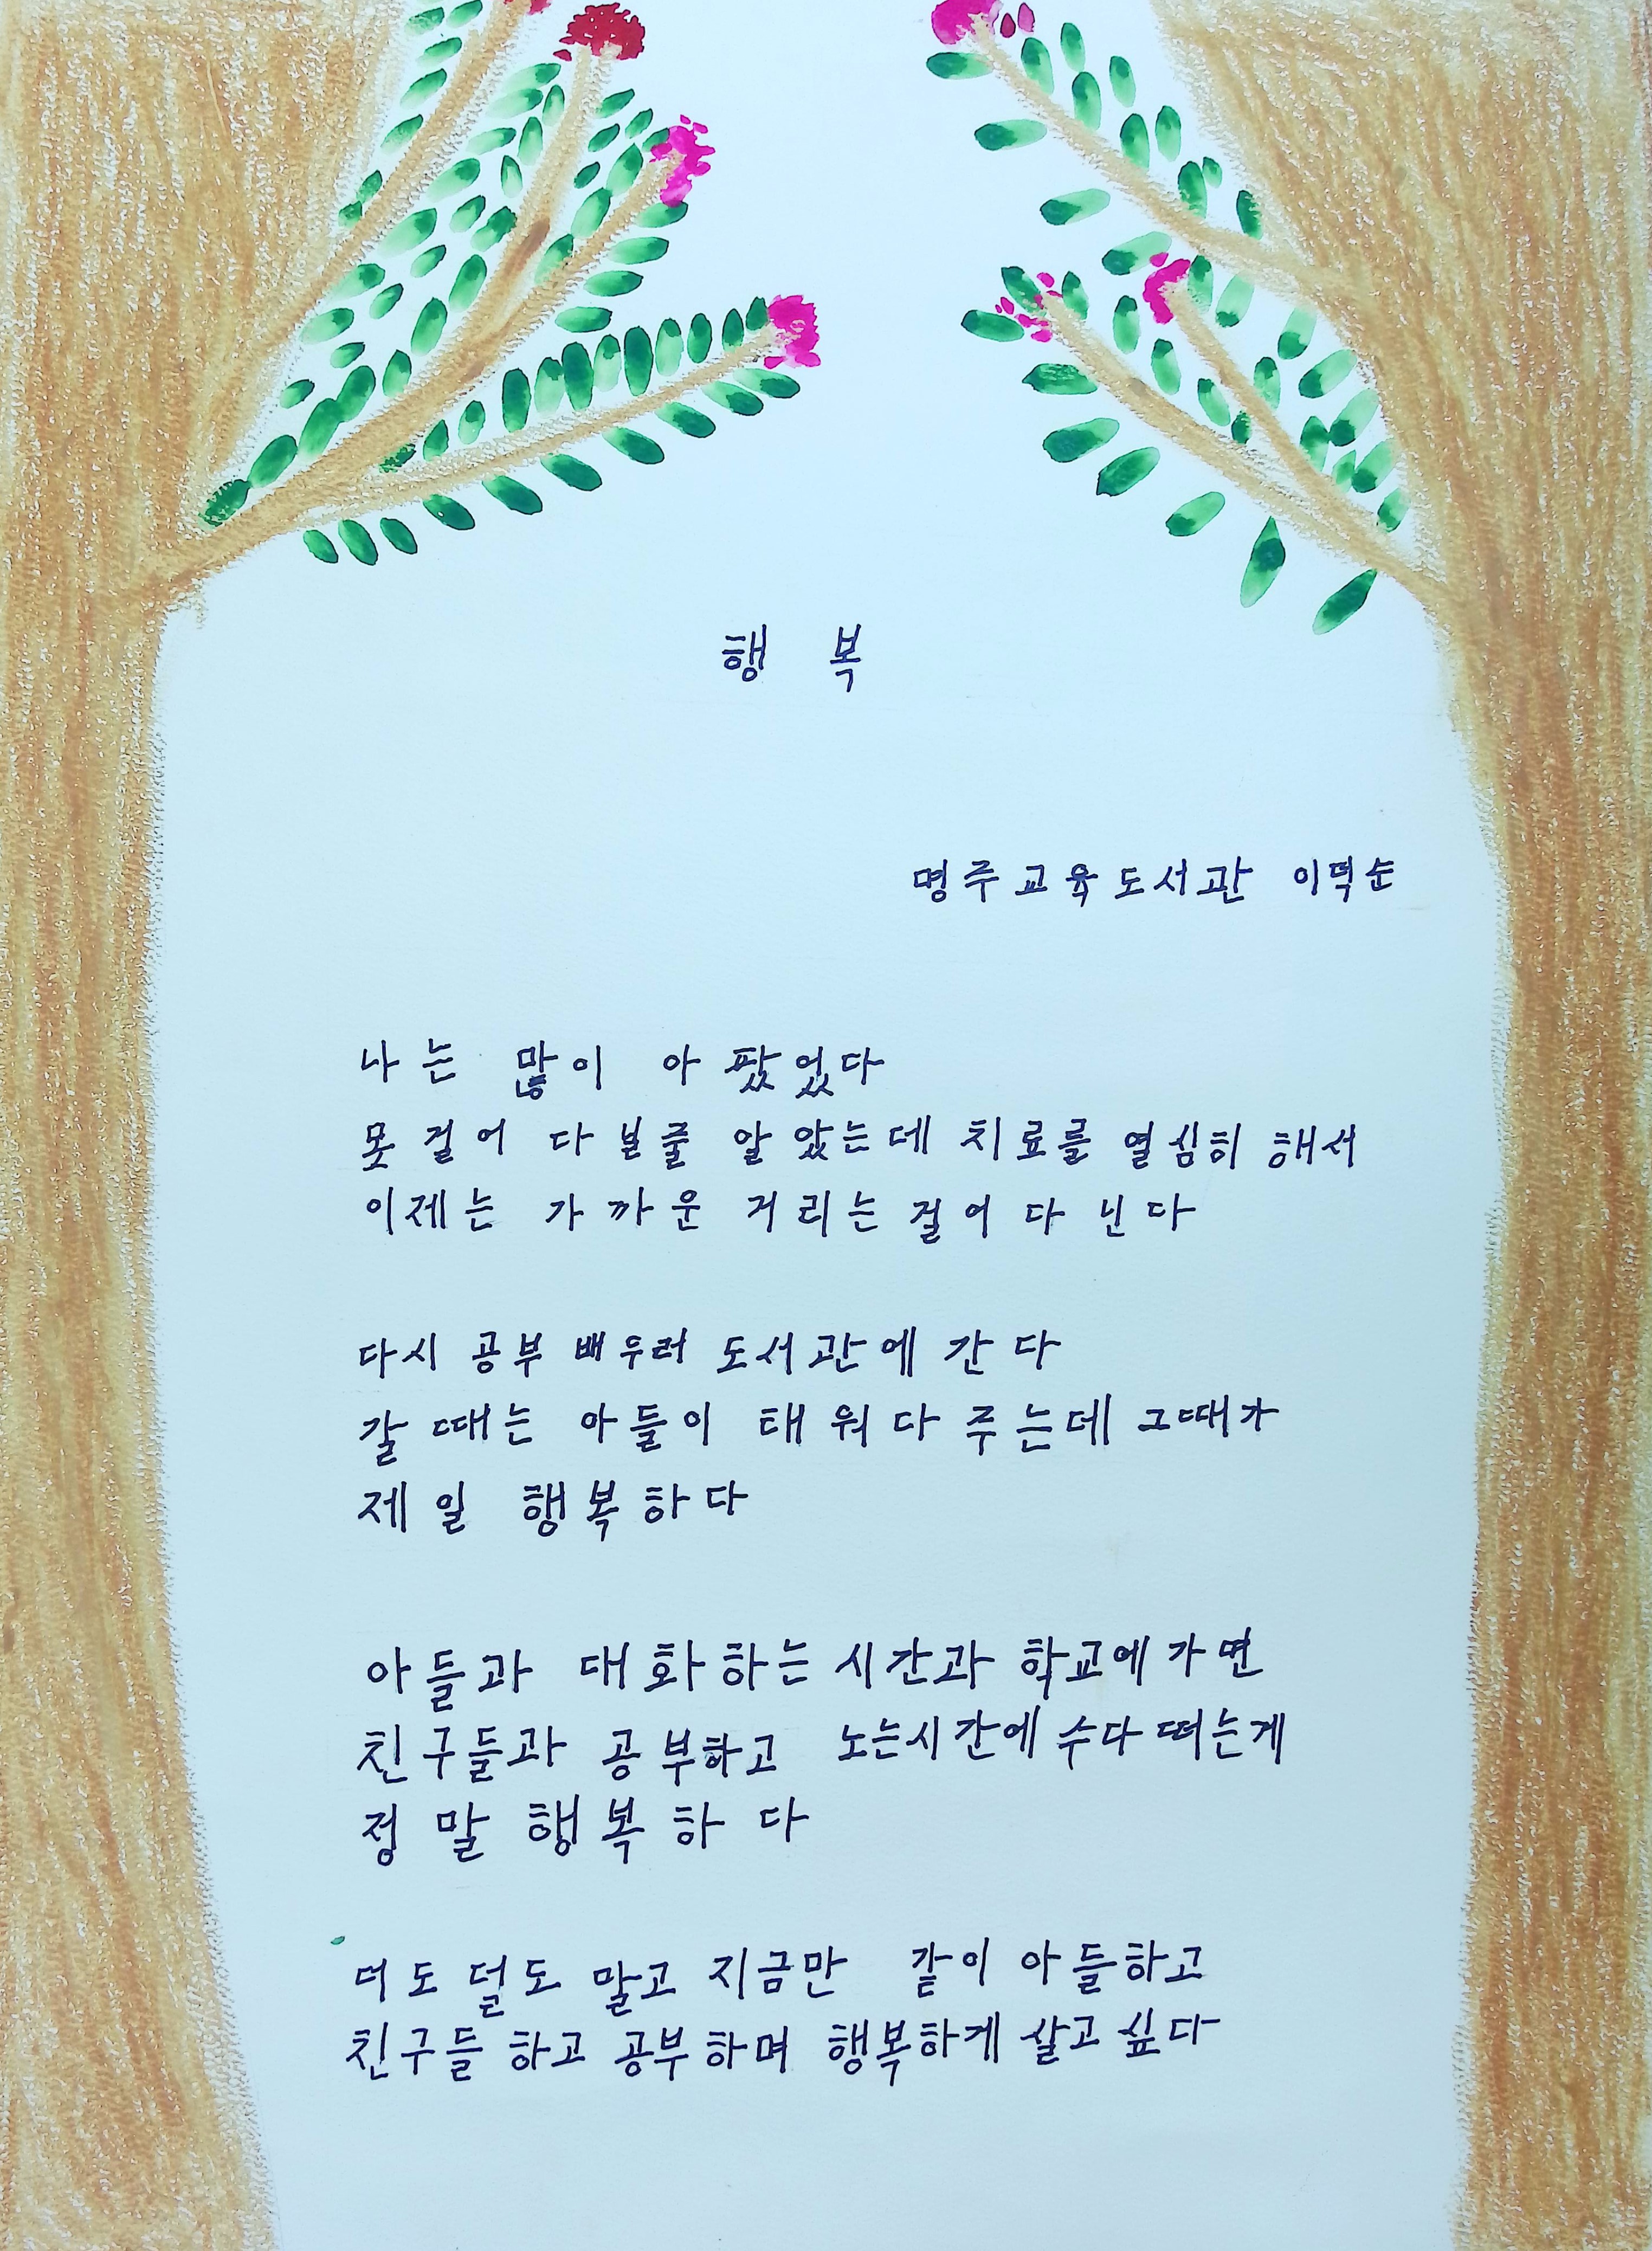 행 복
명주교육도서관 이덕순
나는 많이 아팠었다
못 걸어 다닐줄 알았는데 치료를 열심히 해서
이제는 가까운 거리는 걸어 다닌다
다시 공부 배우러 도서관에 간다
갈 때는 아들이 태워다 주는데 그때가
제일 행복하다
아들과 대화하는 시간과 학교에 가면
친구들과 공부하고 노는시간에 수다 떠는게
정말 행복하다
더도 덜도 말고 지금만 같이 아들하고
친구들 하고 공부하며 행복하게 살고 싶다